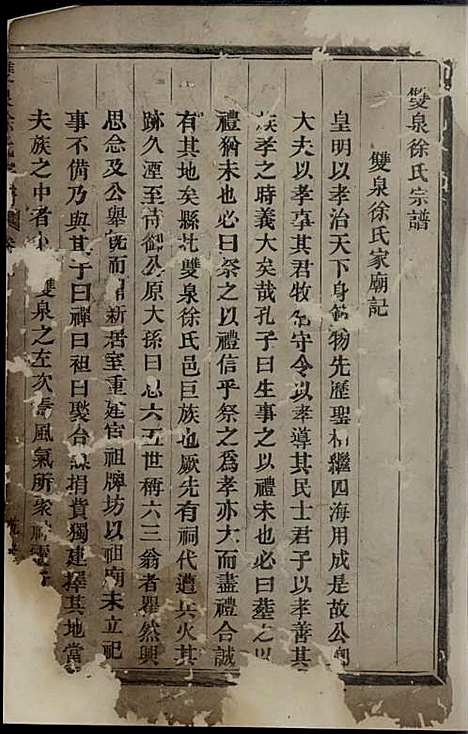 雙泉徐氏宗譜
雙泉徐氏家廟記
皇明以孝治天下身範物先歷聖相繼四海用成是故公卿
大夫以孝事其君牧守令以孝導其民士君子以孝善其
族孝之時義大矣哉孔子曰生事之以禮未也必曰葬之以
禮猶未也必曰祭之以禮信乎祭之爲孝亦大而盡禮合誠
有其地矣縣北雙泉徐氏邑巨族也厥先有祠代遭兵火其
跡久湮至侍御公原大孫曰思六五世稱六三翁者瞿然興
思念及公舉旣而新居室重建官祖牌坊以祖廟未立祀
事不備乃與其子曰禪曰祖曰袋台捐貲獨建擇其地當
夫族之中者雙泉之左次風氣所聚